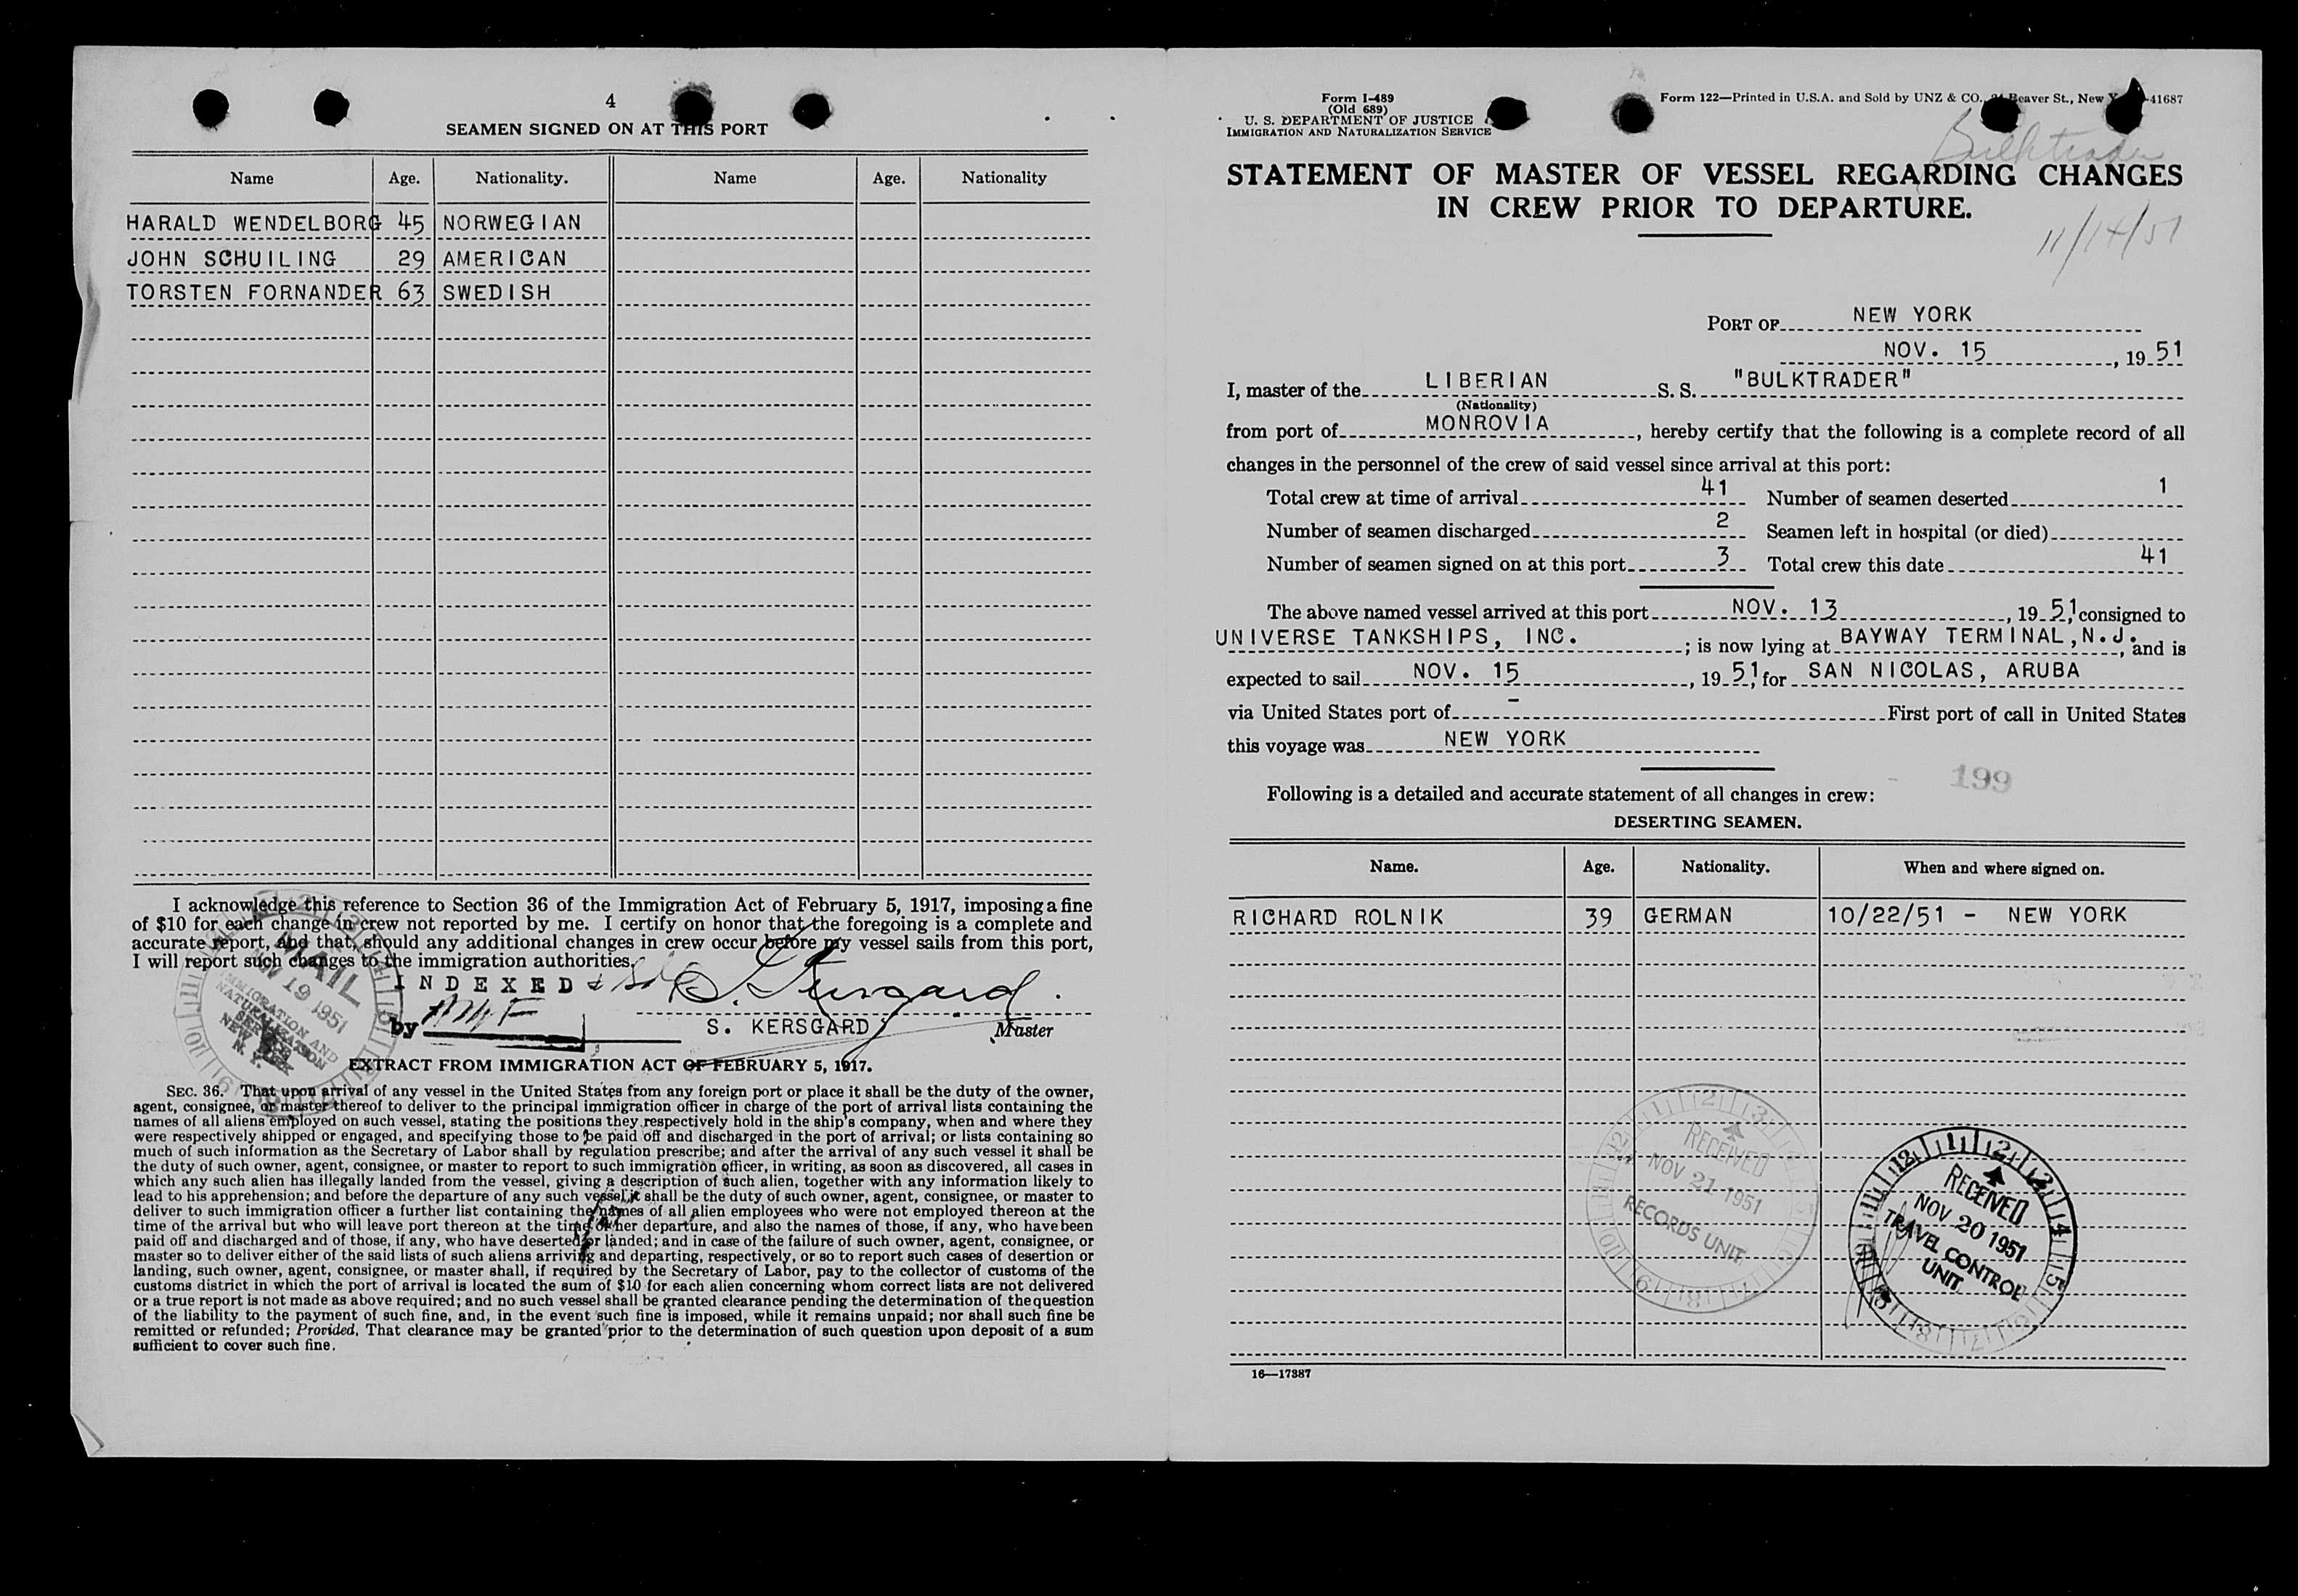 4
SEAMEN SIGNED ON AT THIS PORT
Name Age. Nationality. Name Age. Nationality
HARALD WENDELBORG 45 NORWEGIAN
JOHN SCHUILING 29 AMERICAN
TORSTEN FORNANDER 63 SWEDISH
I acknowledge this reference to Section 36 of the Immigration Act of February 5, 1917, imposing a fine
of $10 for each change in crew not reported by me. I certify on honor that the foregoing is a complete and
accurate report, and that, should any additional changes in crew occur before my vessel sails from this port,
I will report such changes to the immigration authorities.
INDEXED
by
S. KERSGARD Master
MAIL
NOV 19 1951
IMMIGRATION AND
NATURALIZATION
SERVICE
NEW YORK
N. Y.
EXTRACT FROM IMMIGRATION ACT OF FEBRUARY 5, 1917.
SEC. 36. That upon arrival of any vessel in the United States from any foreign port or place it shall be the duty of the owner,
agent, consignee, or master thereof to deliver to the principal immigration officer in charge of the port of arrival lists containing the
names of all aliens employed on such vessel, stating the positions they respectively hold in the ship's company, when and where they
were respectively shipped or engaged, and specifying those to be paid off and discharged in the port of arrival; or lists containing so
much of such information as the Secretary of Labor shall by regulation prescribe; and after the arrival of any such vessel it shall be
the duty of such owner, agent, consignee, or master to report to such immigration officer, in writing, as soon as discovered, all cases in
which any such alien has illegally landed from the vessel, giving a description of such alien, together with any information likely to
lead to his apprehension; and before the departure of any such vessel it shall be the duty of such owner, agent, consignee, or master to
deliver to such immigration officer a further list containing the names of all alien employees who were not employed thereon at the
time of the arrival but who will leave port thereon at the time of her departure, and also the names of those, if any, who have been
paid off and discharged and of those, if any, who have deserted or landed; and in case of the failure of such owner, agent, consignee, or
master so to deliver either of the said lists of such aliens arriving and departing, respectively, or so to report such cases of desertion or
landing, such owner, agent, consignee, or master shall, if required by the Secretary of Labor, pay to the collector of customs of the
customs district in which the port of arrival is located the sum of $10 for each alien concerning whom correct lists are not delivered
or a true report is not made as above required; and no such vessel shall be granted clearance pending the determination of the question
of the liability to the payment of such fine, and, in the event such fine is imposed, while it remains unpaid; nor shall such fine be
remitted or refunded; Provided, That clearance may be granted prior to the determination of such question upon deposit of a sum
sufficient to cover such fine.
Form I-489
(Old 689)
U. S. DEPARTMENT OF JUSTICE
IMMIGRATION AND NATURALIZATION SERVICE
Form 122—Printed in U.S.A. and Sold by UNZ & CO., Beaver St., New 41687
Bulktrader
STATEMENT OF MASTER OF VESSEL REGARDING CHANGES
IN CREW PRIOR TO DEPARTURE.
11/14/51
PORT OF NEW YORK
NOV. 15, 19 51
I, master of the LIBERIAN S. S. "BULKTRADER"
(Nationality)
from port of MONROVIA, hereby certify that the following is a complete record of all
changes in the personnel of the crew of said vessel since arrival at this port:
Total crew at time of arrival 41 Number of seamen deserted 1
Number of seamen discharged 2 Seamen left in hospital (or died)
Number of seamen signed on at this port 3 Total crew this date 41
The above named vessel arrived at this port NOV. 13, 19 51, consigned to
UNIVERSE TANKSHIPS, INC.; is now lying at BAYWAY TERMINAL, N.J., and is
expected to sail NOV. 15, 19 51, for SAN NICOLAS, ARUBA
via United States port of - First port of call in United States
this voyage was NEW YORK
199
Following is a detailed and accurate statement of all changes in crew:
DESERTING SEAMEN.
Name. Age. Nationality. When and where signed on.
RICHARD ROLNIK 39 GERMAN 10/22/51 - NEW YORK
RECEIVED
NOV 21 1951
RECORDS UNIT
RECEIVED
NOV 20 1951
TRAVEL CONTROL
UNIT
16—17387